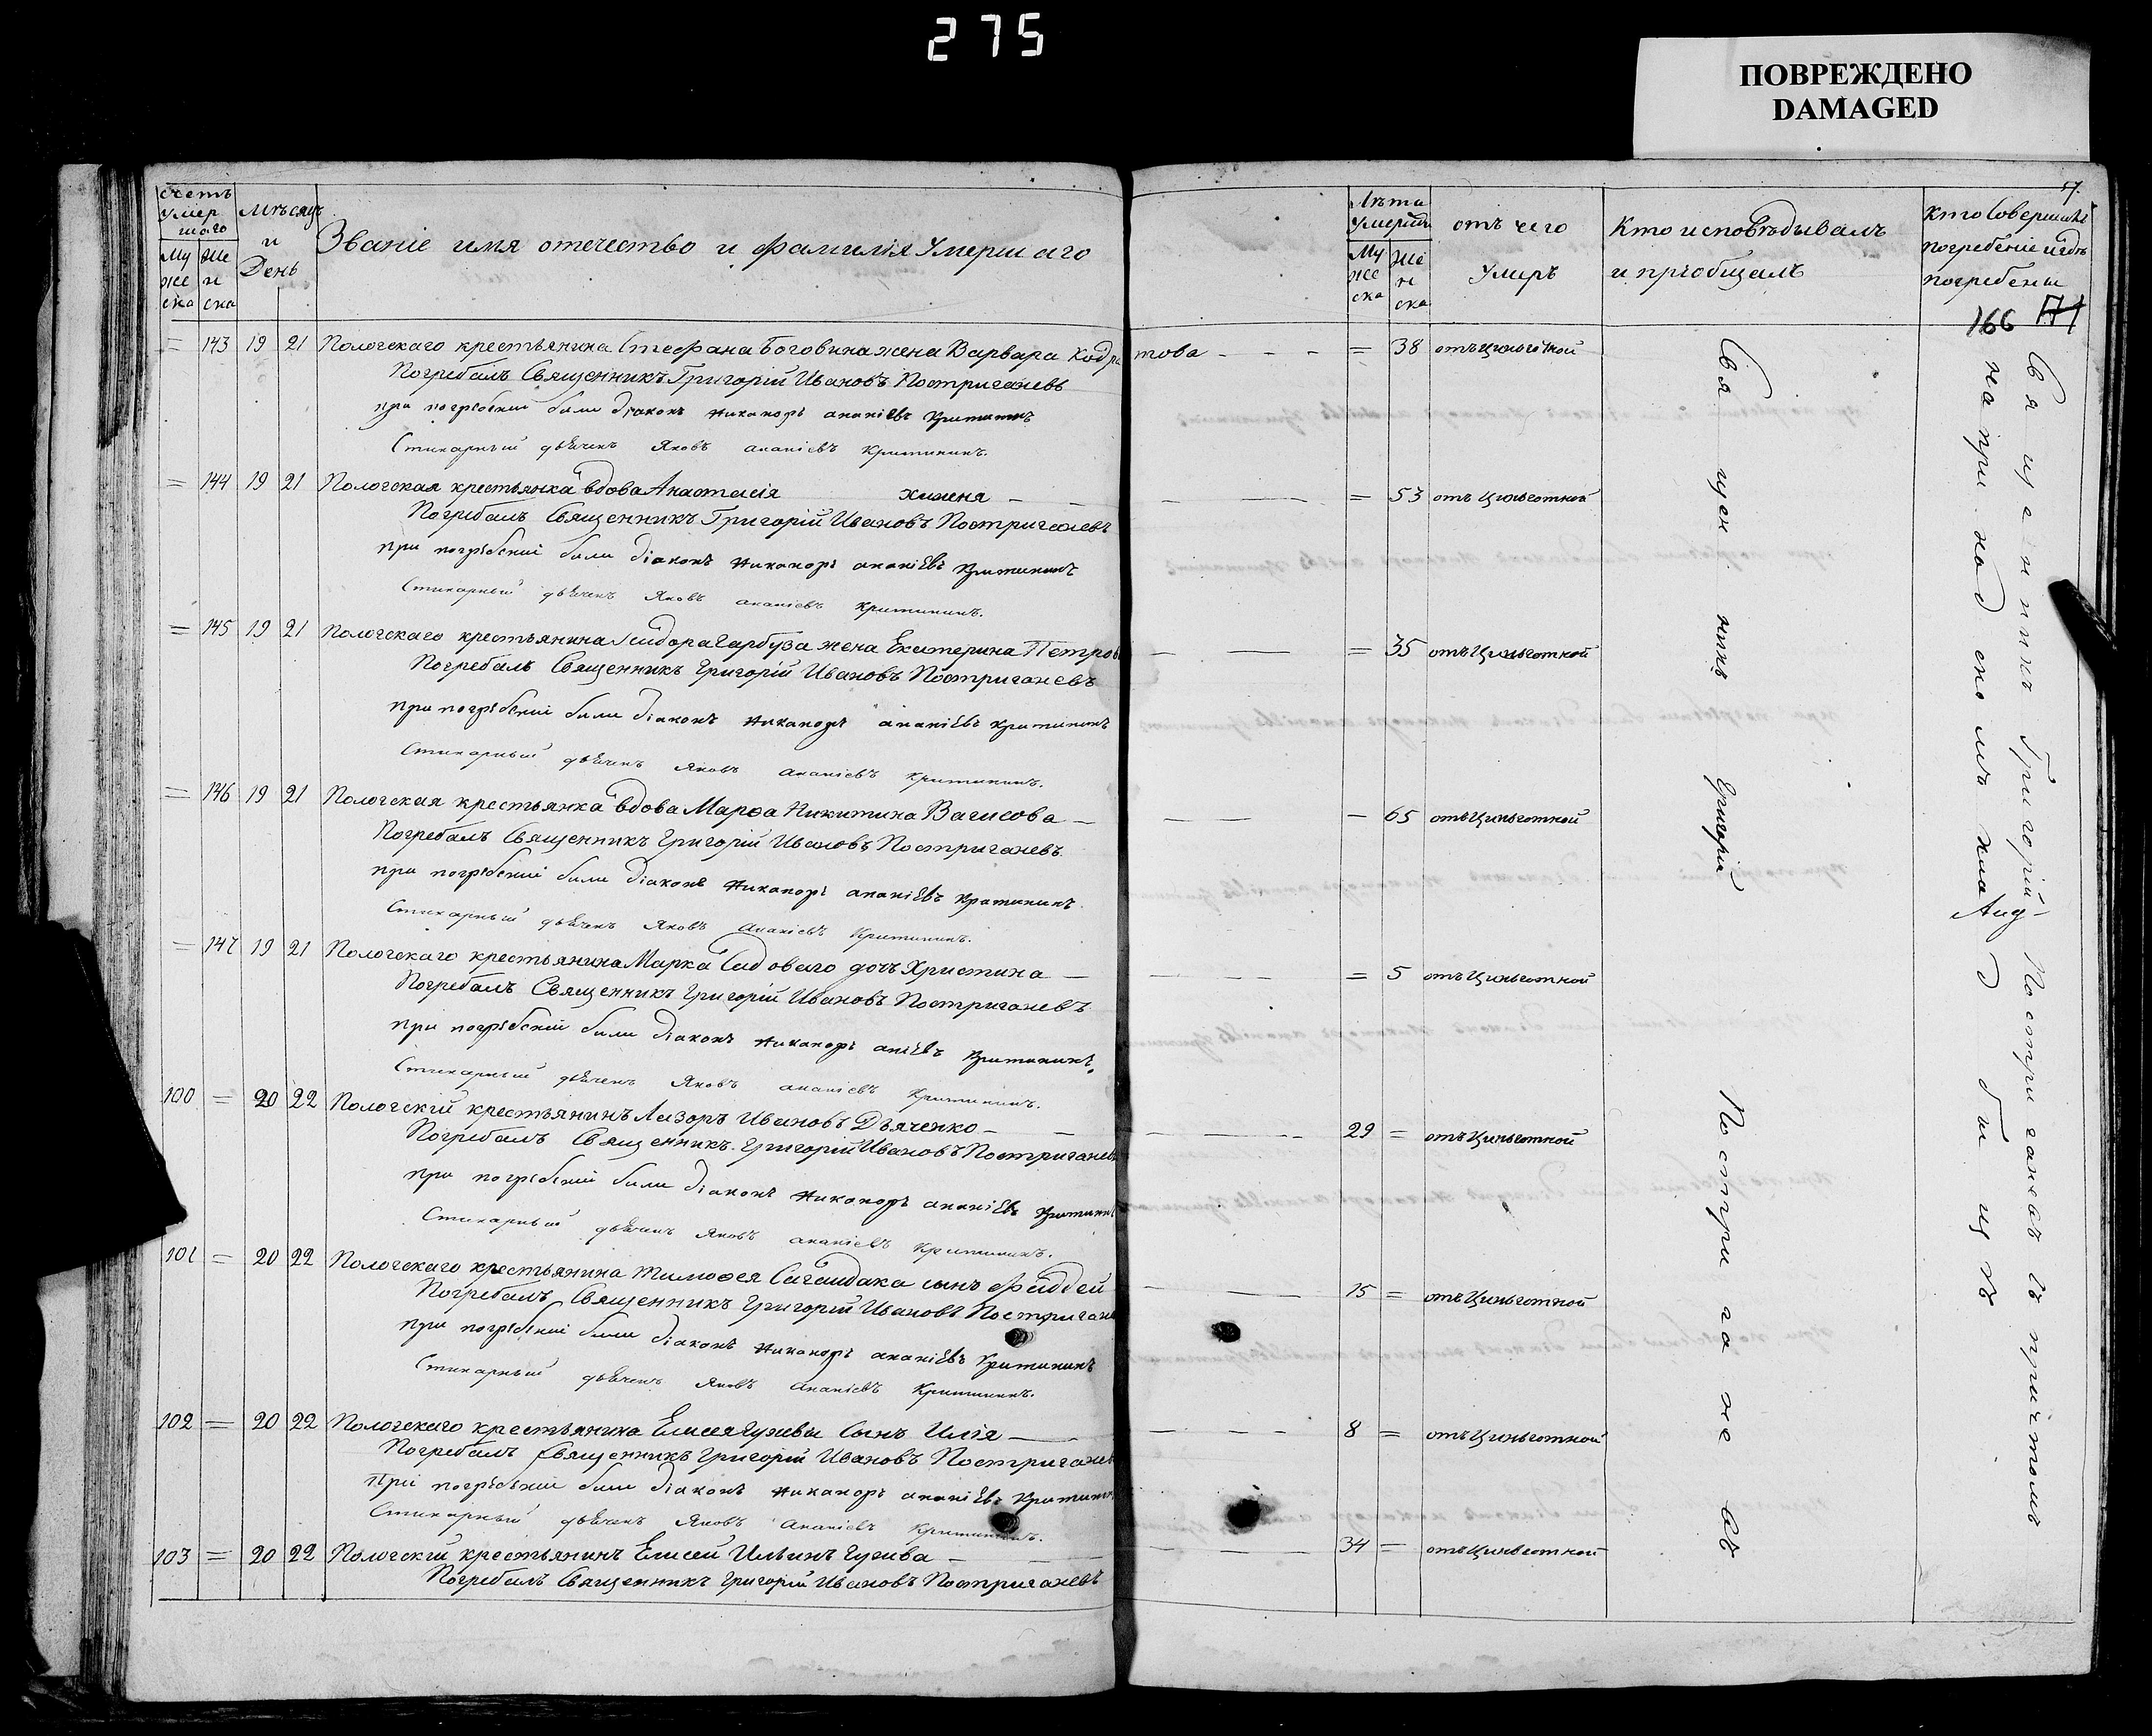 275
ПОВРЕЖДЕНО
DAMAGED
Счетъ умершаго
Мужеска
Женска
Мѣсяцъ и День
Званіе имя отечество и фамилія Умершаго
Лѣта Умерш
Мужеска
Женска
отъ чего Умеръ
Кто исповѣдывалъ и пріобщалъ
Кто Совершалъ погребеніе и гдѣ погребены
166
= 143 19 21 Пологскаго крестьянина Стефана Боговина жена Варвара Кодратова - - - = 38 отъ Цынготной
Погребалъ Священникъ Григорій Ивановъ Постриганевъ
при погребеніи были діаконъ Никаноръ ананіевъ Критининъ
Стихарный дьячекъ Яковъ ананіевъ Критининъ.
= 144 19 21 Пологская крестьянка вдова Анастасія = 53 отъ Цынготной
Погребалъ Священникъ Григорій Ивановъ Постриганевъ
при погребеніи были діаконъ Никаноръ ананіевъ Критининъ
Стихарный дьячекъ Яковъ ананіевъ Критининъ.
= 145 19 21 Пологскаго крестьянина Исидора Гарбуза жена Екатерина Петров = 35 отъ Цынготной
Погребалъ Священникъ Григорій Ивановъ Постриганевъ
при погребеніи были діаконъ Никаноръ ананіевъ Критининъ
Стихарный дьячекъ Яковъ ананіевъ Критининъ.
= 146 19 21 Пологская крестьянка вдова Марѳа Никитина - 65 отъ Цынготной
Погребалъ Священникъ Григорій Ивановъ Постриганевъ
при погребеніи были діаконъ Никаноръ ананіевъ Критининъ
Стихарный дьячекъ Яковъ ананіевъ Критининъ.
= 147 19 21 Пологскаго крестьянина Марка Садоваго дочъ Христина = 5 отъ Цынготной
Погребалъ Священникъ Григорій Ивановъ Постриганевъ
при погребеніи были діаконъ Никаноръ аніевъ Критининъ
Стихарный дьячекъ Яковъ ананіевъ Критининъ.
100 = 20 22 Пологскій крестьянинъ Лазоръ Ивановъ Дьяченко 29 = отъ Цынготной
Погребалъ Священникъ Григорій Ивановъ Постриганевъ
при погребеніи были діаконъ Никаноръ ананіевъ Критинин
Стихарный дьячекъ Яковъ ананіевъ Критининъ.
101 = 20 22 Пологскаго крестьянина Тимоѳея Сагайдака сынъ Фаддей 15 = отъ Цынготной
Погребалъ Священникъ Григорій Ивановъ Постриган
при погребеніи были діаконъ Никаноръ ананіевъ Критининъ
Стихарный дьячекъ Яковъ ананіевъ Критининъ.
102 = 20 22 Пологскаго крестьянина Елисея Гужвы Сынъ Илія 8 = отъ Цынготной
Погребалъ Священникъ Григорій Ивановъ Постриганев
При погребеніи были діаконъ Никаноръ ананіевъ Критинин
Стихарный дьячекъ Яковъ ананіевъ Критининъ.
103 = 20 22 Пологскій крестьянинъ Елисей Ильинъ Гужва 34 = отъ Цынготной
Погребалъ Священникъ Григорій Ивановъ Постриганевъ
Священникъ Григорій Постриганевъ
Священникъ Григорій Постриганевъ съ причтомъ
на приходскомъ кладбищѣ